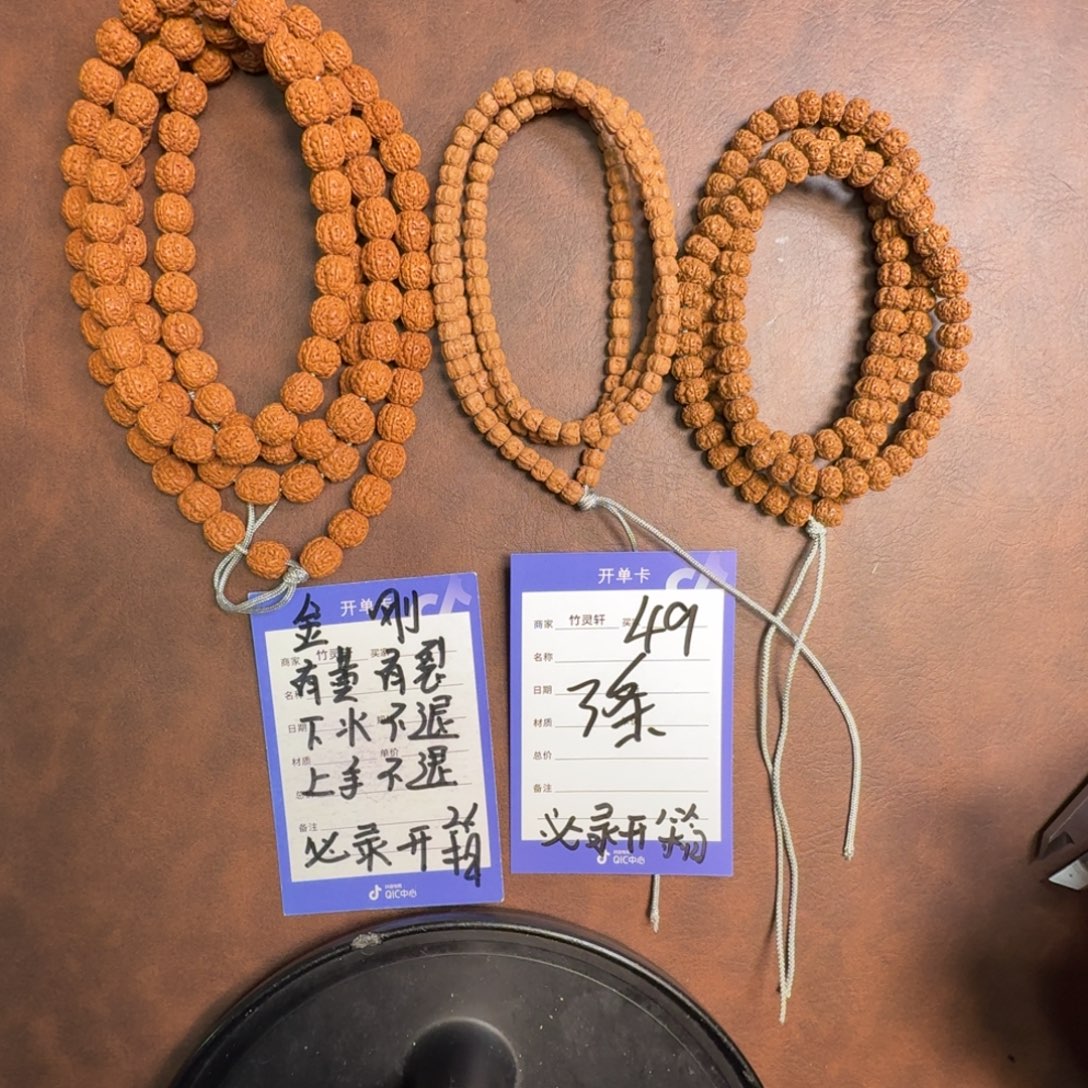 开单卡
金刚
商家 竹灵轩 买家
有董有裂
名称
下水不退
日期
材质 单价
上手不退
总
备注
必录开箱
QIC中心
开单卡
商家 竹灵轩 买
49
名称
日期
3条
材质
总价
备注
必录开箱
QIC中心